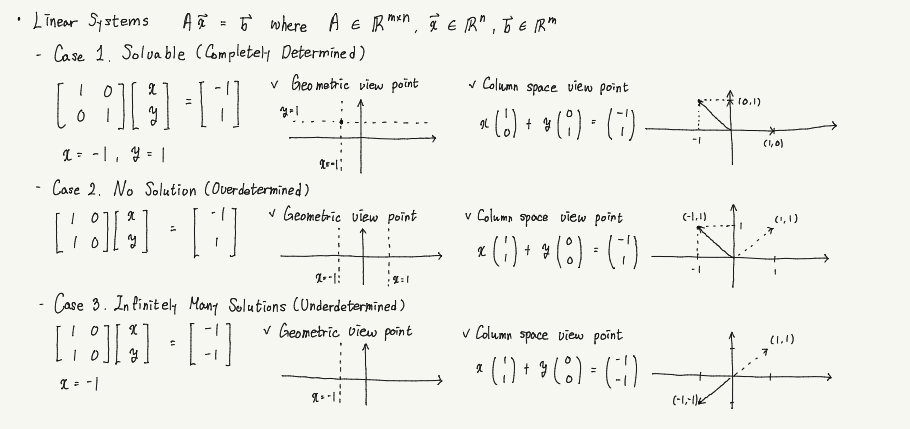 • Linear Systems A x⃗ = b⃗ where A ∈ ℝ^{m×n}, x⃗ ∈ ℝ^n, b⃗ ∈ ℝ^m
- Case 1. Solvable (Completely Determined)
[1 0; 0 1][x; y] = [-1; 1]
x = -1, y = 1
✓ Geometric view point
y=1
x=-1
✓ Column space view point
x(1; 0) + y(0; 1) = (-1; 1)
(0,1)
-1
(1,0)
- Case 2. No Solution (Overdetermined)
[1 0; 1 0][x; y] = [-1; 1]
✓ Geometric view point
x=-1
x=1
✓ Column space view point
x(1; 1) + y(0; 0) = (-1; 1)
(-1,1)
1
(1,1)
-1
1
- Case 3. Infinitely Many Solutions (Underdetermined)
[1 0; 1 0][x; y] = [-1; -1]
x = -1
✓ Geometric view point
x=-1
✓ Column space view point
x(1; 1) + y(0; 0) = (-1; -1)
(1,1)
(-1,-1)